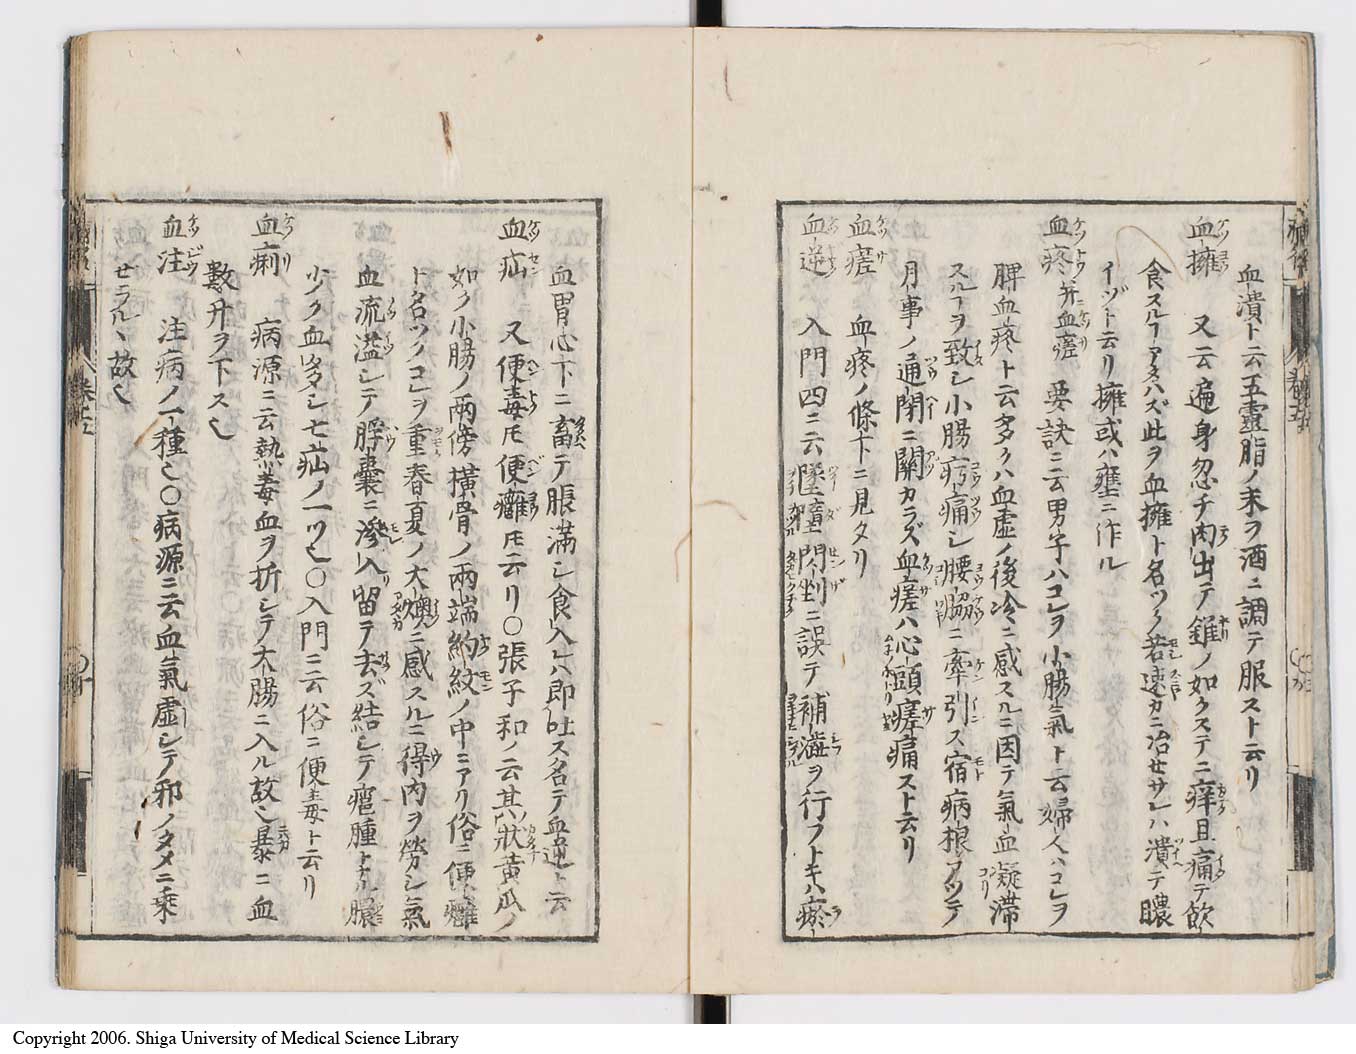 血潰ト云五靈脂ノ末ヲ酒ニ調テ服スト云リ
血擁 又云遍身忽チ肉出テ錐ノ如クステニ痒且痛テ飲
食スルヿアタハズ此ヲ血擁ト名ツク若速カニ冶せサレハ潰テ膿
イヅト云リ擁或ハ壅ニ作ル
血疼并血瘥 要訣ニ云男子ハコレヲ小腸氣ト云婦人ハコレヲ
脾血疼ト云多クハ血虚ノ後冷ニ感スルニ因テ氣血凝滞
スルヿヲ致シ小腸痛シ腰脇ニ牽引ス宿病根アツテ
月事ノ通閉ニ關カラズ血瘥ハ心頭瘥痛スト云リ
血瘥 血疼ノ條下ニ見タリ
血逆 入門四ニ云墜墮閃剉ニ誤テ補澁ヲ行フトキハ瘀
血胃心下ニ畜テ脹満シ食入レハ即吐ス名テ血逆ト云
血疝 又便毒𪜈便癰𪜈云リ〇張子和ノ云其狀黄瓜ノ
如ク小腸ノ兩傍横骨ノ兩端約紋ノ中ニアリ俗ニ便癰
ト名ツクコレヲ重春夏ノ大燠ニ感スルニ得内ヲ勞シ氣
血流溢シテ脬囊ニ滲入留テ去ズ結シテ癰腫トナル膿
少ク血多シ七疝ノ一ツ也〇入門ニ云俗ニ便毒ト云リ
血痢 病源ニ云熱毒血ヲ折シテ大腸ニ入ル故也暴ニ血
數升ヲ下ス也
血注 注病ノ一種也〇病源ニ云血氣虚シテ邪ノタメニ乘
せラルヽ故也
Copyright 2006. Shiga University of Medical Science Library